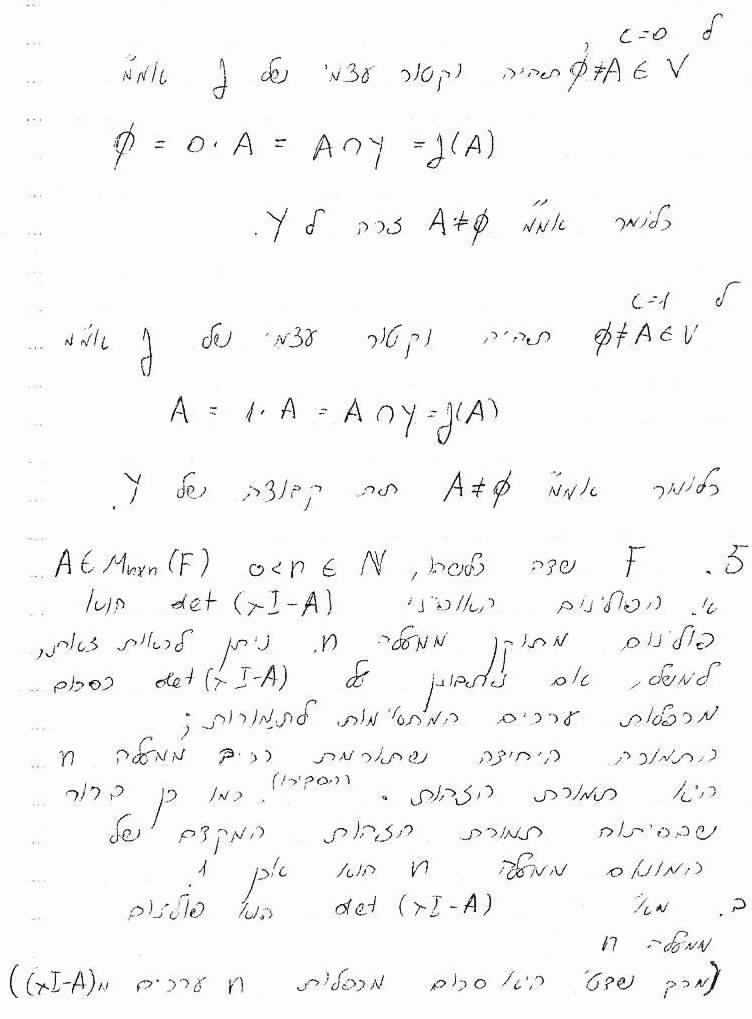 ל c=0
φ≠A∈V תהיה וקטור עצמי של g אממ"
φ = 0·A = A∩Y = g(A)
כלומר אממ" A≠φ זרה ל Y.
ל c=1
φ≠A∈V תהיה וקטור עצמי של g אמ"מ
A = 1·A = A∩Y = g(A)
כלומר אממ" A≠φ תת קבוצה של Y.
5. F שדה כלשהו, A∈Mnxn(F) 0<n∈N
א. הפולינום האופייני det(xI-A) הוא
פולינום מתוקן ממעלה n. ניתן לראות זאת,
למשל, אם נתבונן על det(xI-A) כסכום
מכפלות ערכים המתאימות לתמורות;
התמורה היחידה שתורמת רכיב ממעלה n
היא תמורת הזהות. (הסבירו). כמו כן ברור
שבפיתוח תמורת הזהות המקדם של
המונום ממעלה n הוא אכן 1.
ב. מא' det(xI-A) הוא פולינום
ממעלה n
(מכך שדט' היא סכום מכפלות n ערכים מ(xI-A))